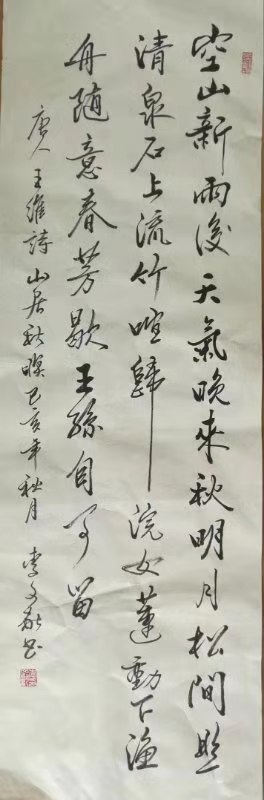 空山新雨後天氣晚來秋明月松間照
清泉石上流竹喧歸浣女蓮動下漁
舟随意春芳歇王孫自可留
唐人王維詩山居秋暝己亥年秋月李文